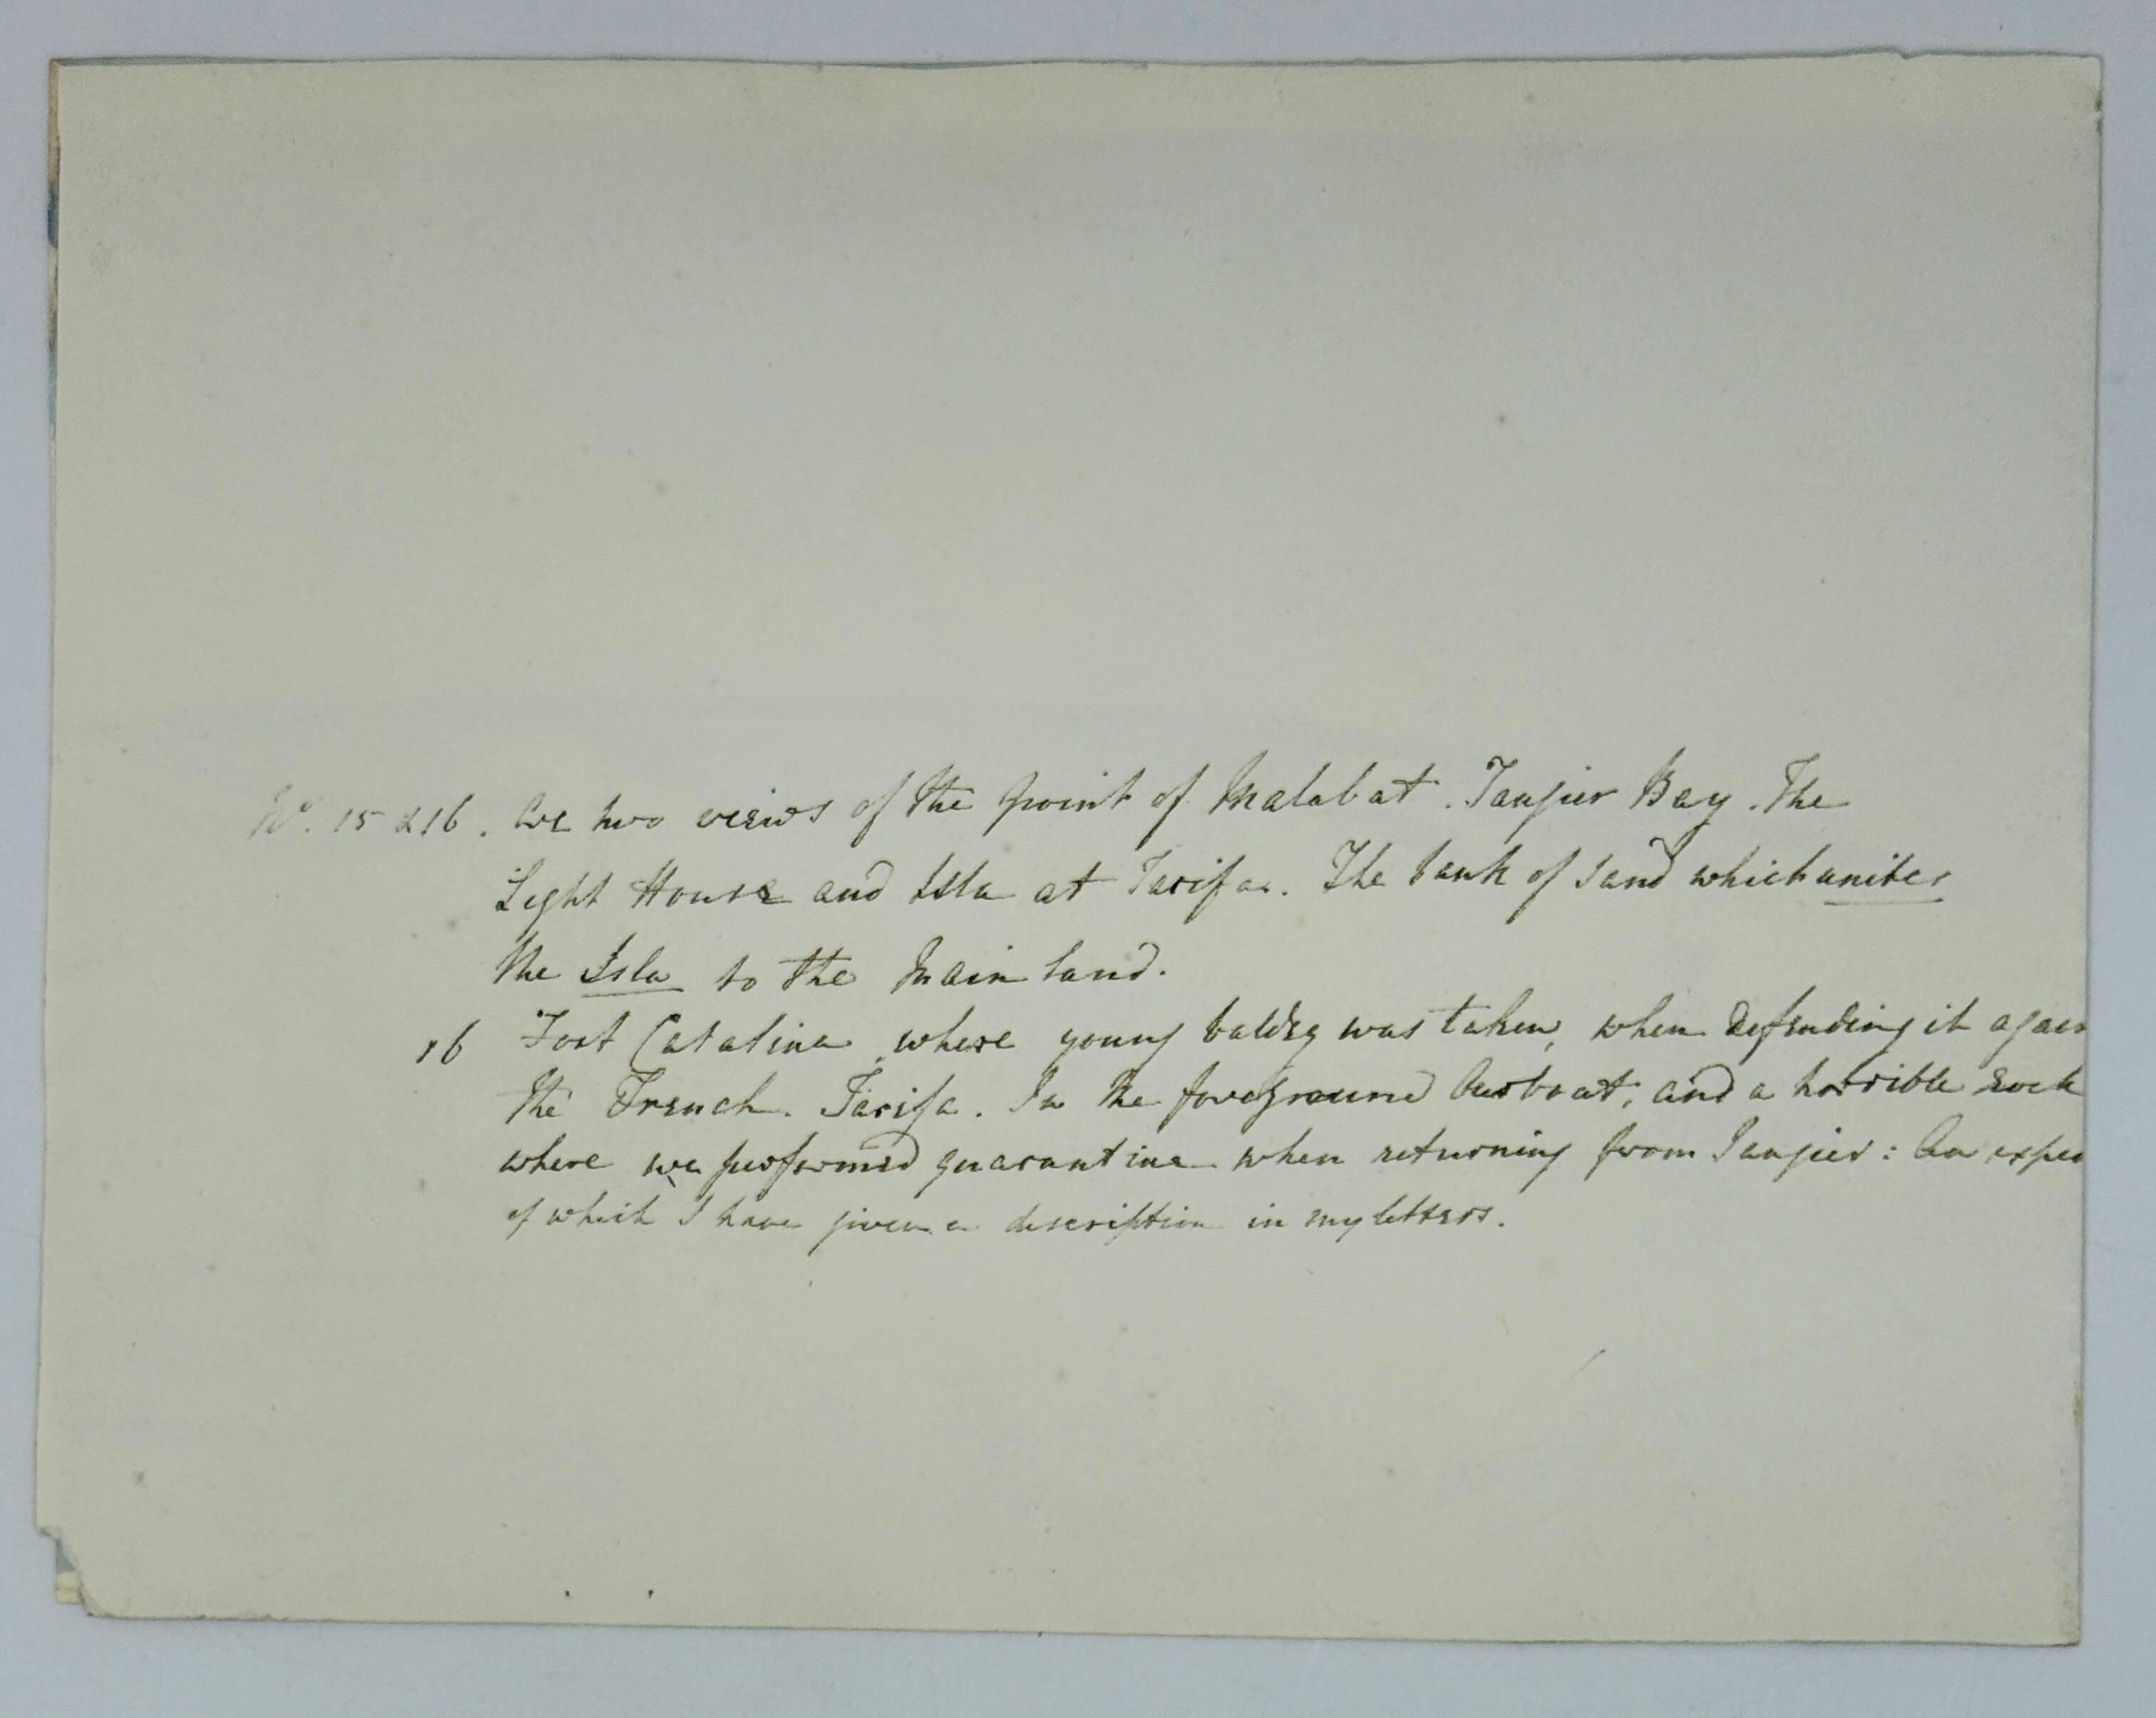 No. 15 & 16. are two views of the point of Malabat. Tangier Bay. The
Light House and Isla at Tarifa. The bank of sand which unites
the Isla to the Main land.
16 Fort Catalina where young was taken, when defending it again
the French. Tarifa. In the foreground our boat, and a horrible rock
where we performed quarantine when returning from Tangier: An exped
of which I have given a description in my letters.